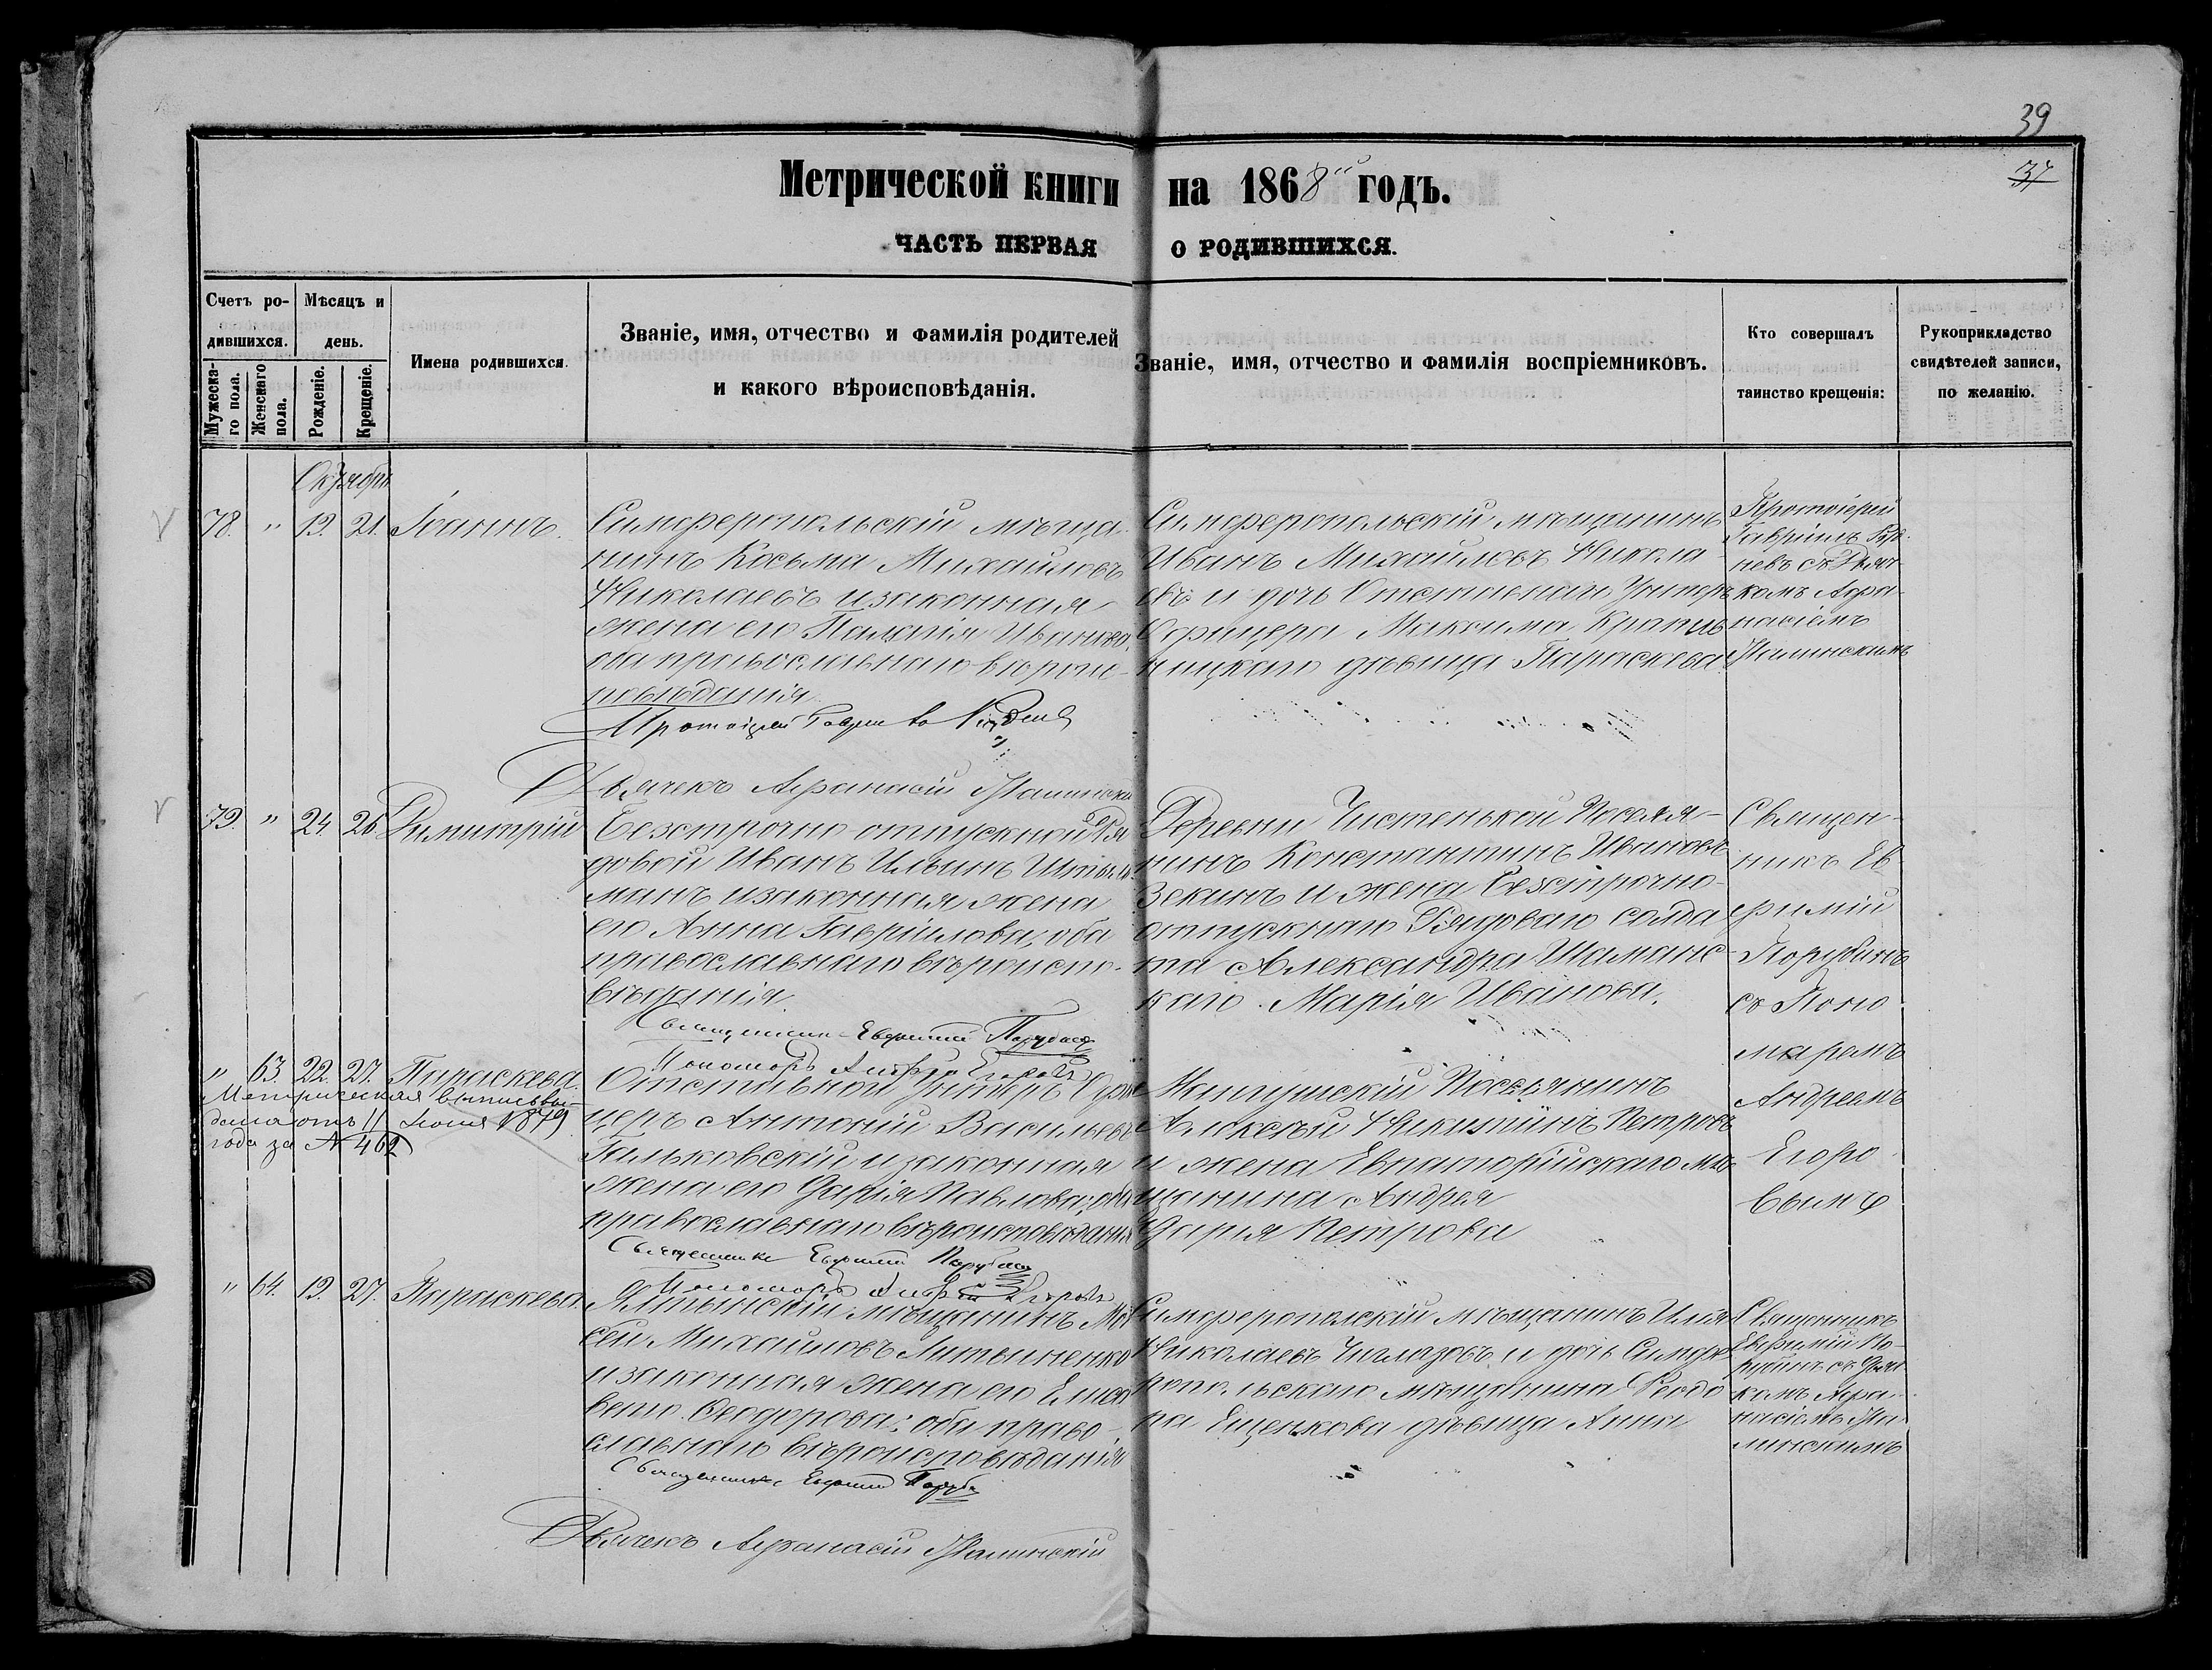 39
37
Метрической книги на 1868й годъ.
ЧАСТЬ ПЕРВАЯ О РОДИВШИХСЯ.
Счетъ ро-
дившихся.
Мѣсяцъ и
день.
Мужеска-
го пола.
Женскаго
пола.
Рожденіе.
Крещеніе.
Имена родившихся.
Званіе, имя, отчество и фамилія родителей
и какого вѣроисповѣданія.
Званіе, имя, отчество и фамилія воспріемниковъ.
Кто совершалъ
таинство крещенія:
Рукоприкладство
свидѣтелей записи,
по желанію.
Октябрь
78. " 19. 21. Іоаннъ.
Симферопольскій мѣща-
нинъ Косьма Михайловъ
Николаевъ и законная
жена его Пелагія Иванова,
оба православнаго вѣроис-
повѣданія.
Протоіерей
Симферопольскій мѣщанинъ
Иванъ Михайловъ Никола-
евъ и дочь Отставнаго Унтеръ
Офицера Максима
дѣвица Параскева.
Протоіерей
Гавріилъ
съ Дьяч-
комъ Афа-
насіемъ
Дьячекъ Афанасій
79. " 24. 26. Димитрій
Безсрочно-отпускной Ря-
довой Иванъ Ильинъ
манъ и законная жена
его Анна Гавріилова, оба
православнаго вѣроиспо-
вѣданія.
Священникъ Евфимій
Пономарь Андрей Егоровъ
Деревни Чистенькой Поселя-
нинъ Константинъ Ивановъ
Зекинъ и жена Безсрочно-
отпускнаго Рядоваго солда-
та Александра Шаманс-
каго Марія Иванова.
Священ-
никъ Ев-
фимій
Порубинъ
съ Поно-
маремъ
Андреемъ
Егоро-
вымъ
" 63. 22. 27. Параскева.
Метрическая выпись вы-
дана отъ 11 Іюня 1879
года за № 462
Отставной Унтеръ Офи-
церъ Антоній Васильевъ
Гальковскій и законная
жена его Дарія Павлова, оба
православнаго вѣроисповѣданія
Священникъ Евфимій
Пономарь Андрей Егоровъ
Поселянинъ
Алексѣй Никитинъ Петровъ
и жена Евпаторійскаго мѣ-
щанина Андрея
Дарія Петрова
" 64. 19. 27. Параскева.
Ялтинскій мѣщанинъ Мои-
сей Михайловъ Литвиненко
и законная жена его Елиса-
вета Ѳеодорова; оба право-
славнаго вѣроисповѣданія
Священникъ Евфимій
Симферопольскій мѣщанинъ Илія
Николаевъ Чиглазовъ и дочь Симфе-
ропольскаго мѣщанина Ѳеодо-
ра Ещенкова дѣвица Анна
Священникъ
Евфимій По-
рубинъ съ Дьяч-
комъ Афа-
насіемъ
Дьячекъ Афанасій